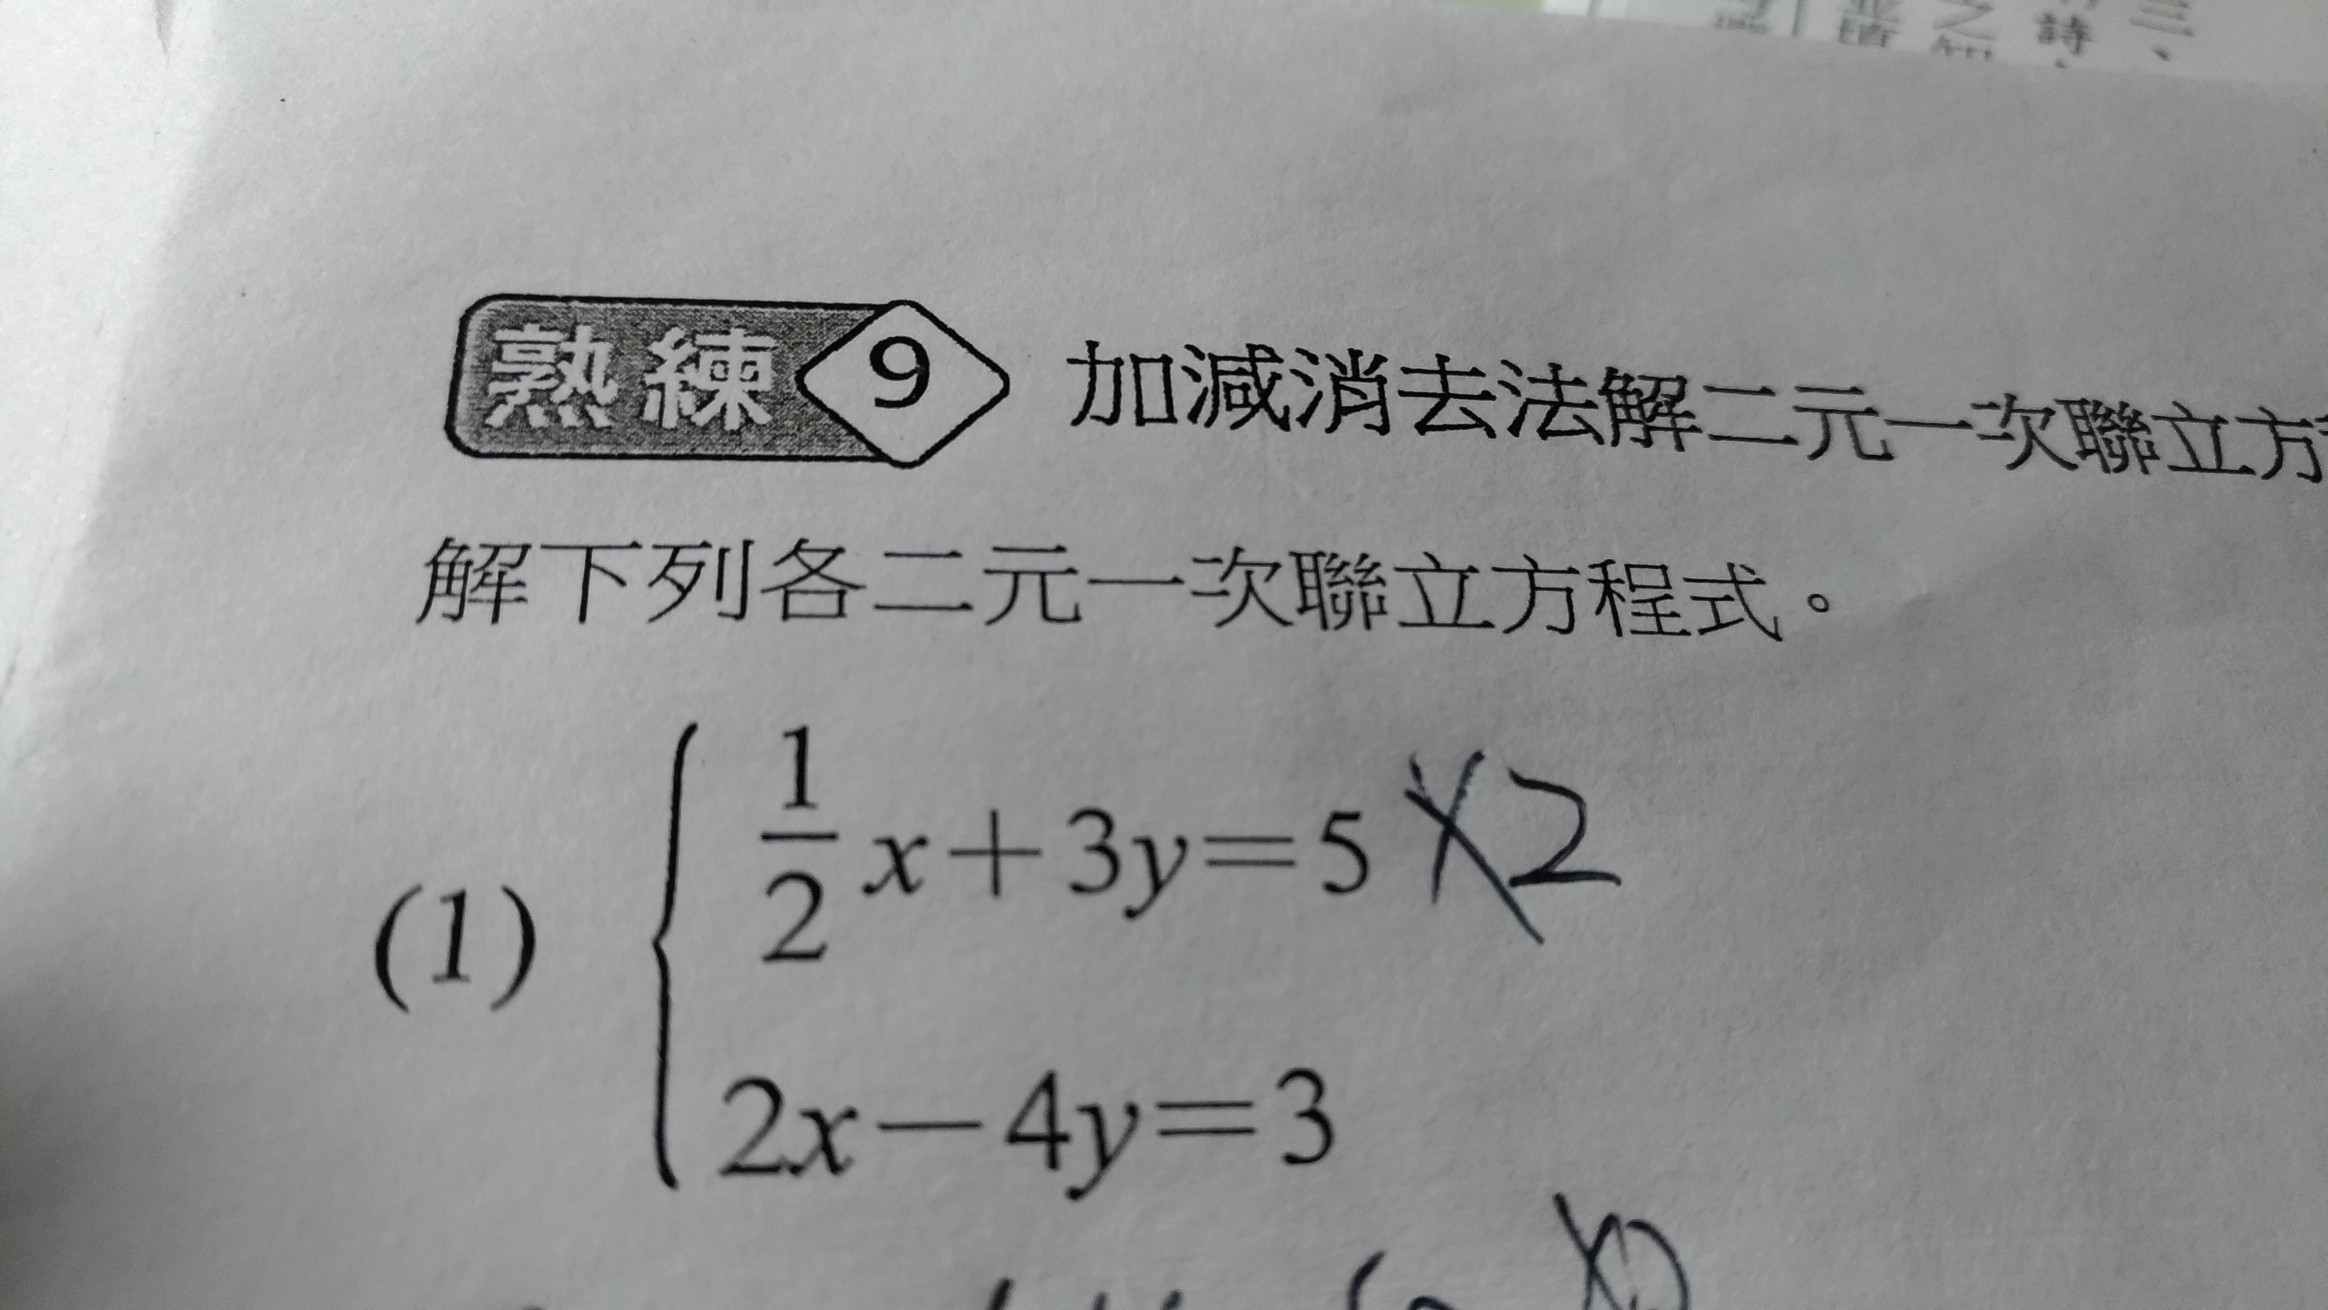 三、
詩
之
熟練 9 加減消去法解二元一次聯立方
解下列各二元一次聯立方程式。
(1) { 1/2 x+3y=5 ×2
2x-4y=3